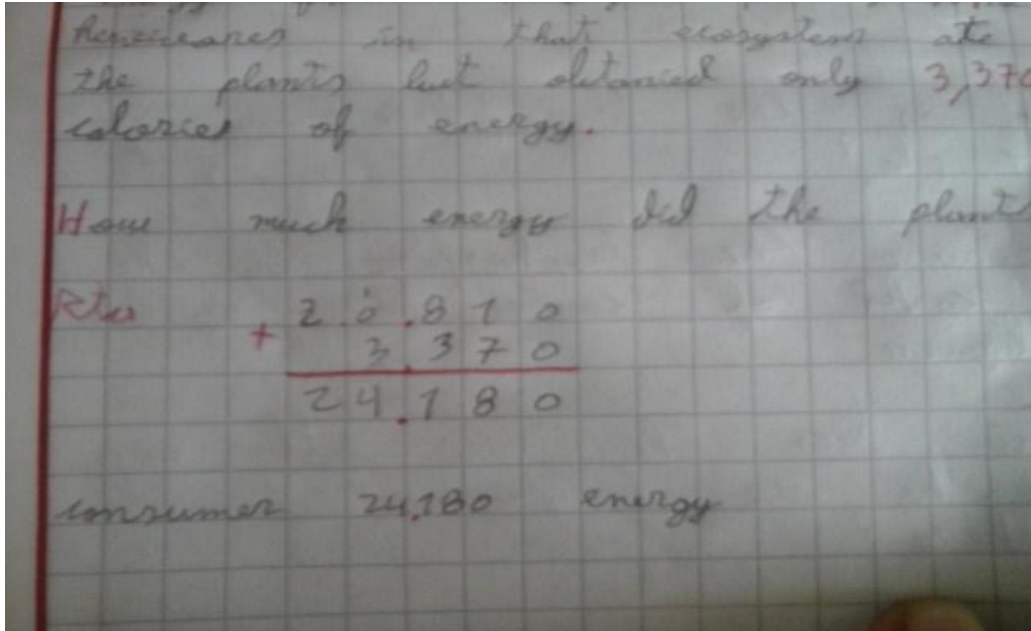 in that ecosystem ate
the plants but obtanied only 3,370
calories of energy.
How much energy did the plant
Rta
20.810
+ 3.370
24.180
consumer 24.180 energy